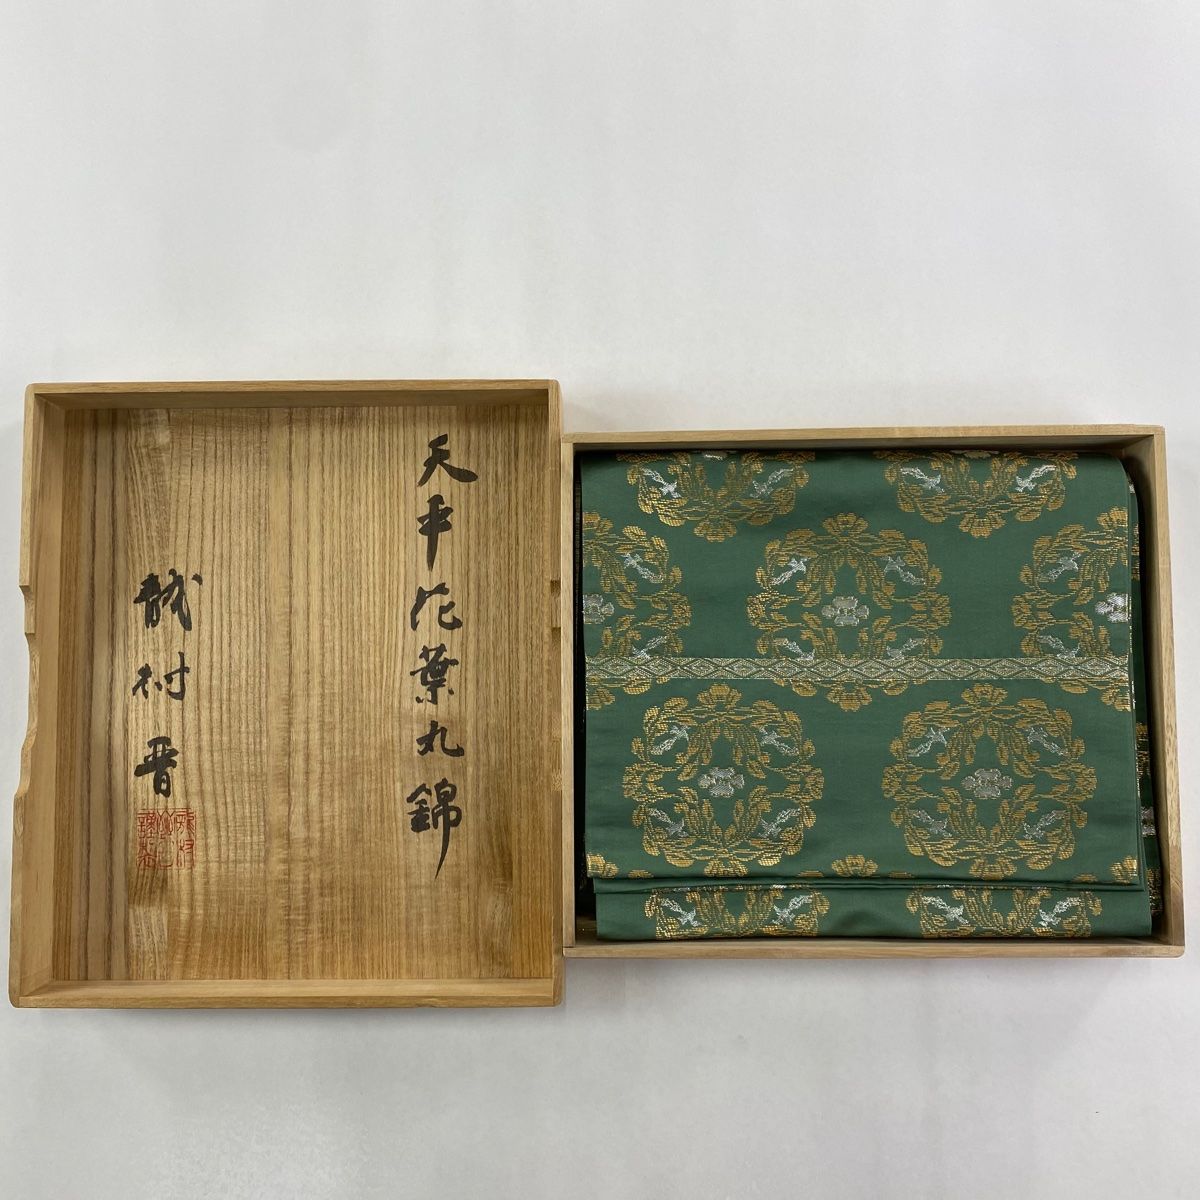 天平花葉丸錦
龍村晋